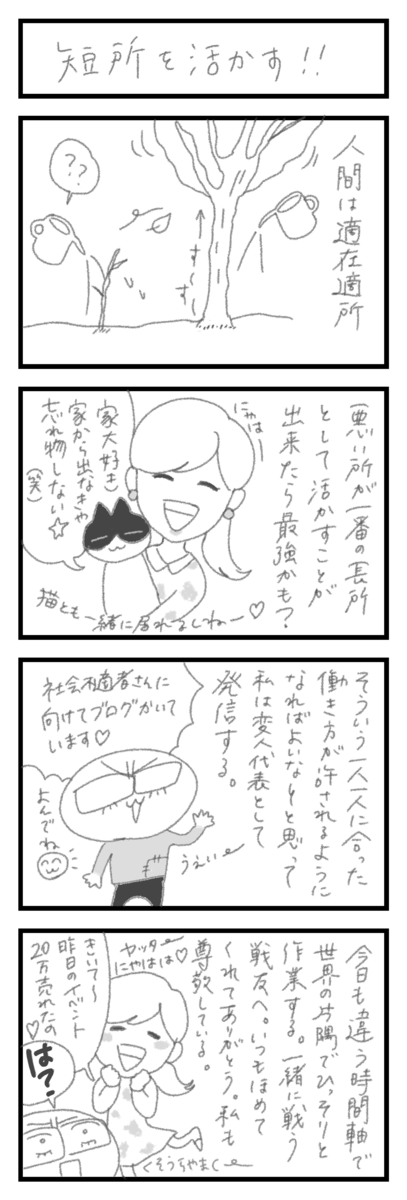 短所を活かす!!
人間は適在適所
??
す〜す
悪い所が一番の長所
として活かすことが
出来たら最強かも？
にゃはー
家大好き
家から出なきゃ
忘れ物しない☆
(笑)
猫とも一緒に居れるしねー♡
そういう一人一人に合った
働き方が許されるように
なればよいなぁと思って
私は変人代表として
発信する。
社会不適者さんに
向けてブログかいて
います♡
よんでね
うぇぃー
今日も違う時間軸で
世界の片隅でひっそりと
作業する。一緒に戦う
戦友へ。いつもほめて
くれてありがとう。私も
尊敬している。
ヤッター
にゃはは♡
きいて〜
昨日のイベント
20万売れたの
♡
は?
くそうちゃまくー